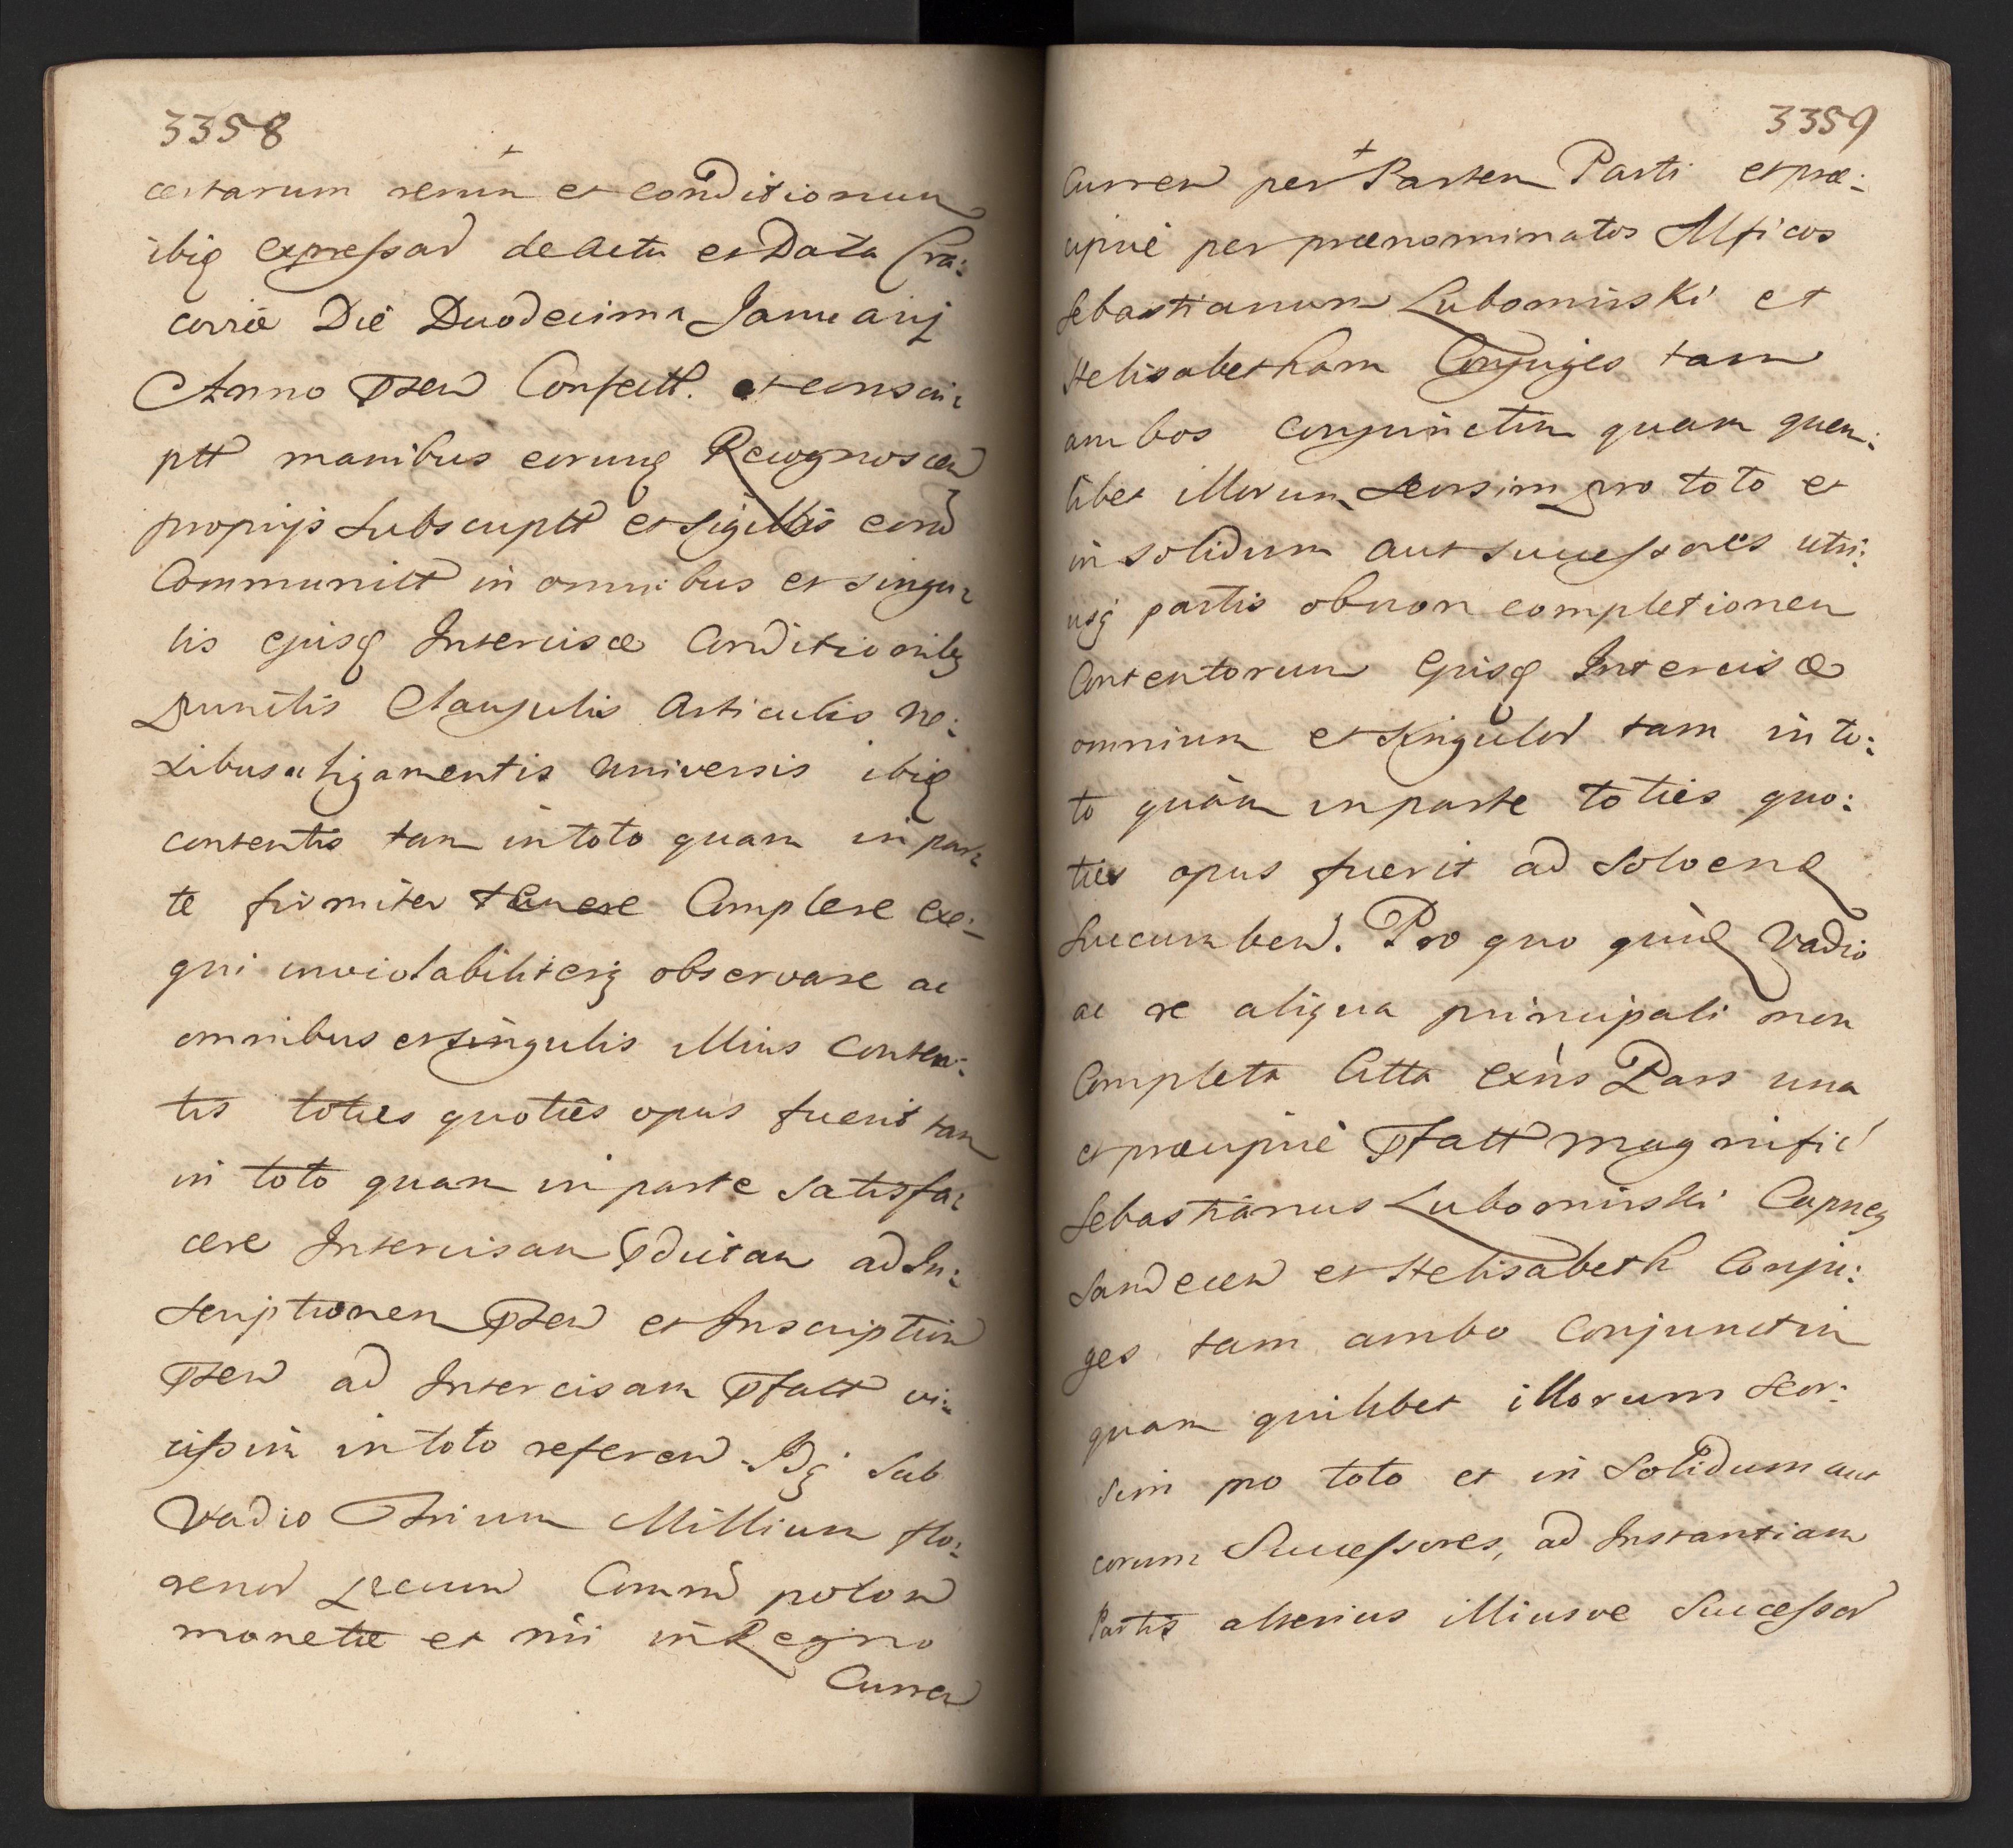 3358
certarum rerum et conditionum
ibiq expressar de Actu et Data Cra:
coviæ Die Duodecima Januarij
Anno Pten Confectt. et conscri:
ptt manibus eorunq Recognoscen
proprijs Subscriptt et Sigillis eord
Communitt in omnibus et singu:
lis ejusq Intercisæ Conditionibq
Punctis Clausulis Articulis ne:
xibus ac ligamentis universis ibiq
contentis tam in toto quam in par:
te firmiter tenere Complere exe:
qui inviolabiliterq observare ac
omnibus et singulis illius conten:
tis toties quoties opus fuerit tam
in toto quam in parte satisfa:
cere Intercisam Pdictam ad In:
scriptionem Pten et Inscription
Pten ad Intercisam Pfatt vi:
cissim in toto referen Idq Sub
Vadio Trium Millium flo:
renor pecun Commù polon
monetæ et nri in Regno
Curren
3359
Curren per Partem Parti et præ:
cipuè per prænominatos Mficos
Sebastianum Lubomirski et
Helisabetham Conjuges tam
ambos conjunctim quam quem:
libet illorum seorsim pro toto et
in solidum aut successores utri:
usq partis ob non completionem
Contentorum ejusq Intercisæ
omnium et singulor tam in to:
to quàm in parte toties quo:
ties opus fuerit ad solvend
Succumben. Pro quo quidq Vadio
ac re aliqua principali non
Completa Citta exùs Pars una
et præcipuè Pfatt magnifici
Sebastianus Lubomirski Capneq
Sandecen et Helisabeth Conju:
ges tam ambo Conjunctim
quam quilibet illorum seor:
sim pro toto et in Solidum aut
eorum Successores, ad Instantiam
Partis alterius illiusve Successor